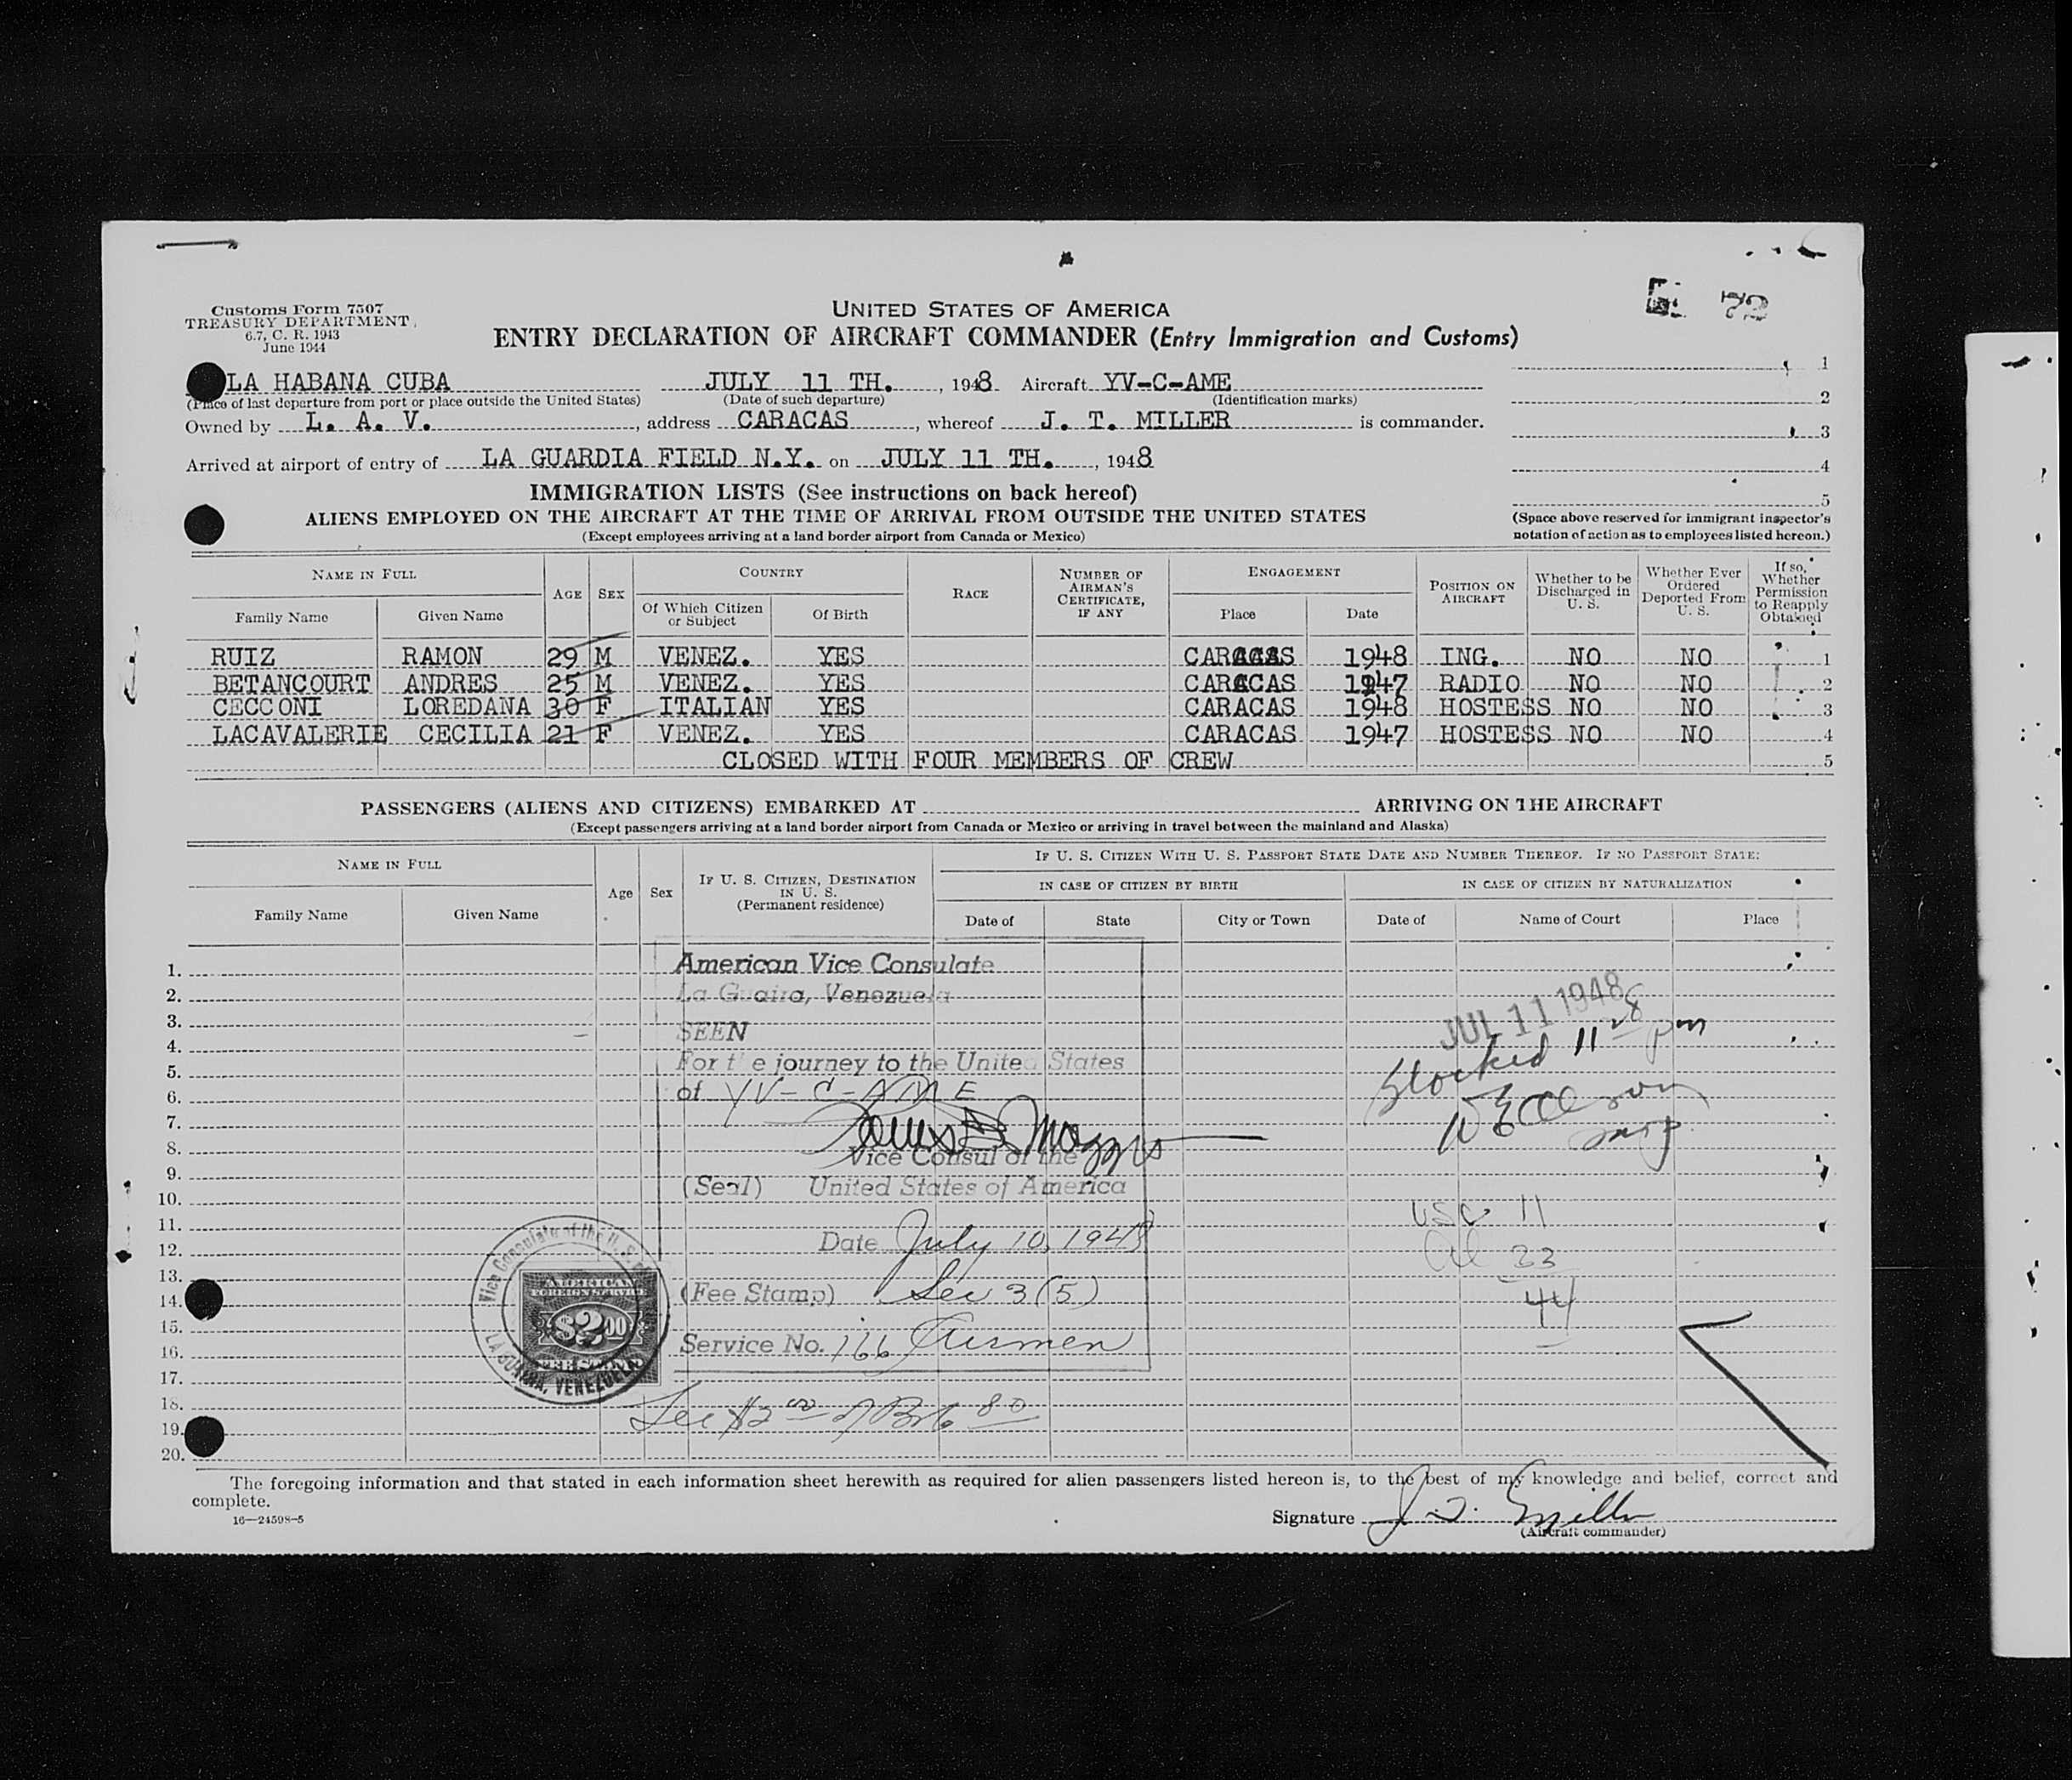 Customs Form 7507
TREASURY DEPARTMENT
6.7, C. R. 1943
June 1944
UNITED STATES OF AMERICA
ENTRY DECLARATION OF AIRCRAFT COMMANDER (Entry Immigration and Customs)
72
LA HABANA CUBA JULY 11 TH. , 1948 Aircraft YV-C-AME
(Place of last departure from port or place outside the United States) (Date of such departure) (Identification marks)
Owned by L. A. V. , address CARACAS , whereof J. T. MILLER is commander.
Arrived at airport of entry of LA GUARDIA FIELD N.Y. on JULY 11 TH. , 1948
1
2
3
4
5
(Space above reserved for immigrant inspector's
notation of action as to employees listed hereon.)
IMMIGRATION LISTS (See instructions on back hereof)
ALIENS EMPLOYED ON THE AIRCRAFT AT THE TIME OF ARRIVAL FROM OUTSIDE THE UNITED STATES
(Except employees arriving at a land border airport from Canada or Mexico)
NAME IN FULL AGE SEX COUNTRY RACE NUMBER OF AIRMAN'S CERTIFICATE, IF ANY ENGAGEMENT POSITION ON AIRCRAFT Whether to be Discharged in U. S. Whether Ever Ordered Deported From U. S. If so, Whether Permission to Reapply Obtained
Family Name Given Name Of Which Citizen or Subject Of Birth Place Date
RUIZ RAMON 29 M VENEZ. YES CARACAS 1948 ING. NO NO 1
BETANCOURT ANDRES 25 M VENEZ. YES CARACAS 1947 RADIO NO NO 2
CECCONI LOREDANA 30 F ITALIAN YES CARACAS 1948 HOSTESS NO NO 3
LACAVALERIE CECILIA 21 F VENEZ. YES CARACAS 1947 HOSTESS NO NO 4
CLOSED WITH FOUR MEMBERS OF CREW 5
PASSENGERS (ALIENS AND CITIZENS) EMBARKED AT ARRIVING ON THE AIRCRAFT
(Except passengers arriving at a land border airport from Canada or Mexico or arriving in travel between the mainland and Alaska)
NAME IN FULL Age Sex IF U. S. CITIZEN, DESTINATION IN U. S. (Permanent residence) IF U. S. CITIZEN WITH U. S. PASSPORT STATE DATE AND NUMBER THEREOF. IF NO PASSPORT STATE:
IN CASE OF CITIZEN BY BIRTH IN CASE OF CITIZEN BY NATURALIZATION
Family Name Given Name Date of State City or Town Date of Name of Court Place
1.
2.
3.
4.
5.
6.
7.
8.
9.
10.
11.
12.
13.
14.
15.
16.
17.
18.
19.
20.
American Vice Consulate
La Guaira, Venezuela
SEEN
For the journey to the United States
of YV-C-AME
Vice Consul of the
(Seal) United States of America
Date July 10, 1948
(Fee Stamp) Sec 3(5)
Service No. 166 Airmen
Vice Consulate of the U. S.
LA GUAIRA, VENEZUELA
AMERICAN
FOREIGN SERVICE
$2.00
FEE STAMP
JUL 11 1948
Blocked 11 28 pm
USC 11
Al 33
44
The foregoing information and that stated in each information sheet herewith as required for alien passengers listed hereon is, to the best of my knowledge and belief, correct and
complete.
16—24598-5
Signature J. T. Miller
(Aircraft commander)